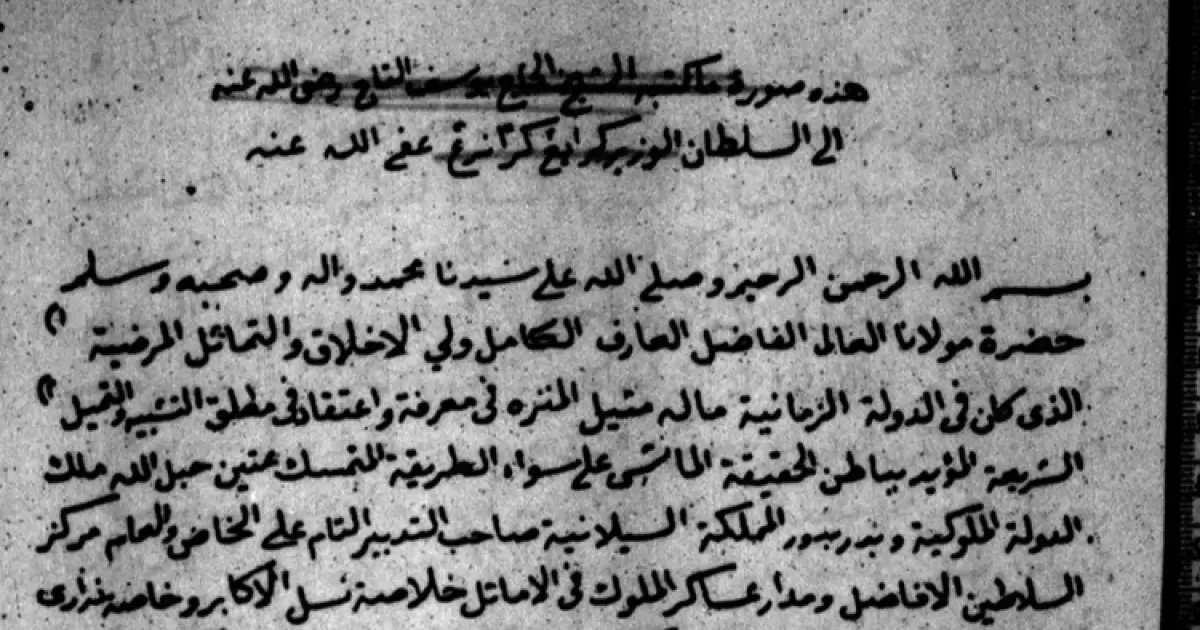 هذه صورة ما كتبه الشيخ الحاج يوسف التاج رضي الله عنه
الى السلطان الوزير عفى الله عنه
بسم الله الرحمن الرحيم وصلى الله على سيدنا محمد واله وصحبه وسلم
حضرة مولانا العالم الفاضل العارف الكامل ولي الاخلاق والشمائل المرضية
الذى كان فى الدولة الزمانية ماله مثيل المنزه فى معرفة واعتقاد فى مطلق التشبيه والتمثيل
الشريعة المؤيد بباطن الحقيقة الماشى على سواء الطريقة المتمسك بمتين حبل الله ملك
الدولة الملوكية وبدر بدور المملكة السيلانية صاحب التدبير التام على الخاص والعام مركز
السلطين الافاضل ومدار عساكر الملوك فى الاماثل خلاصة نسل الاكابر وخاصة